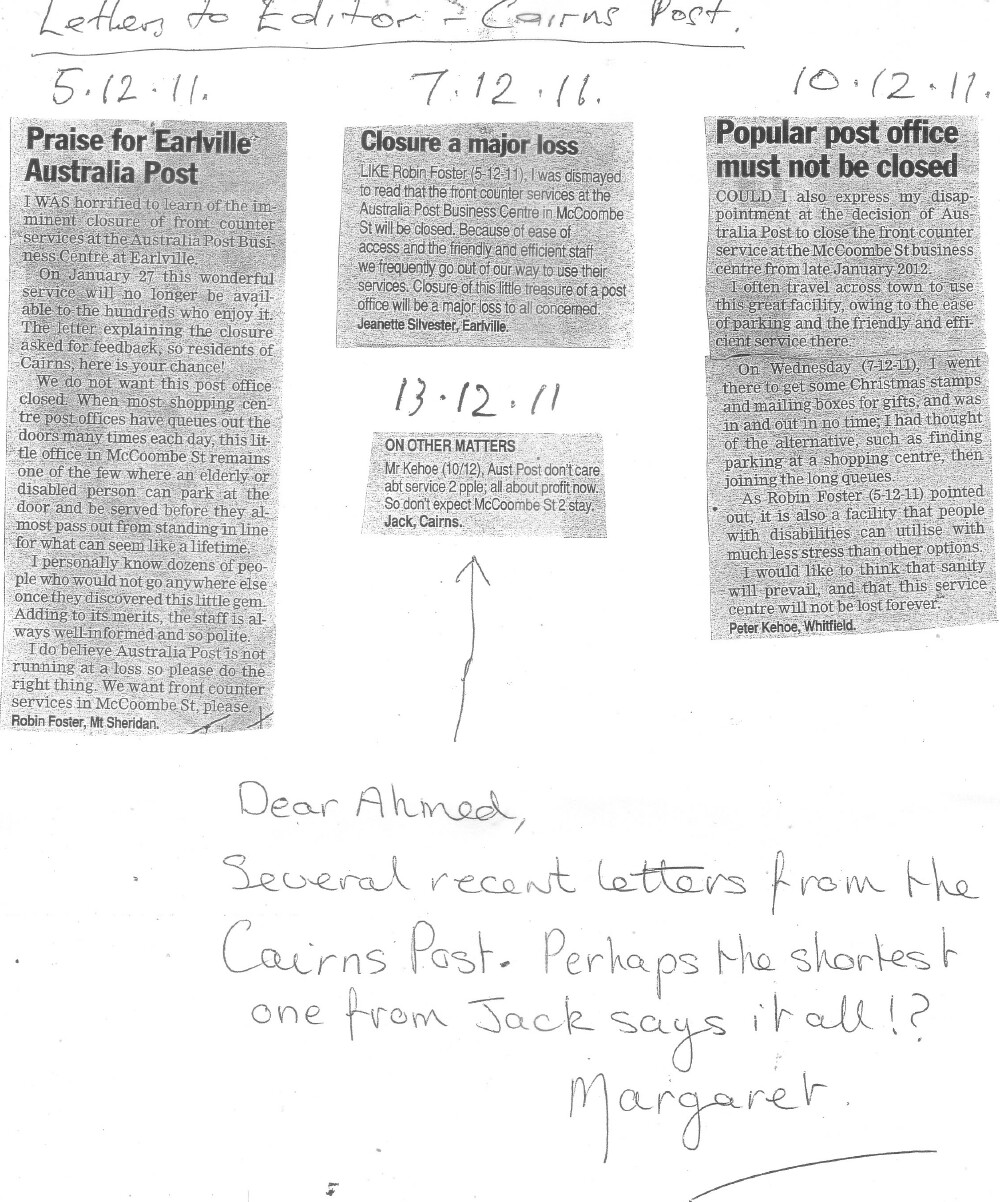 Letters to Editor - Cairns Post.
5.12.11.
Praise for Earlville
Australia Post
I WAS horrified to learn of the im-
minent closure of front counter
services at the Australia Post Busi-
ness Centre at Earlville.
On January 27 this wonderful
service will no longer be avail-
able to the hundreds who enjoy it.
The letter explaining the closure
asked for feedback, so residents of
Cairns, here is your chance!
We do not want this post office
closed. When most shopping cen-
tre post offices have queues out the
doors many times each day, this lit-
tle office in McCoombe St remains
one of the few where an elderly or
disabled person can park at the
door and be served before they al-
most pass out from standing in line
for what can seem like a lifetime.
I personally know dozens of peo-
ple who would not go anywhere else
once they discovered this little gem.
Adding to its merits, the staff is al-
ways well-informed and so polite.
I do believe Australia Post is not
running at a loss so please do the
right thing. We want front counter
services in McCoombe St, please.
Robin Foster, Mt Sheridan.
7.12.11.
Closure a major loss
LIKE Robin Foster (5-12-11), I was dismayed
to read that the front counter services at the
Australia Post Business Centre in McCoombe
St will be closed. Because of ease of
access and the friendly and efficient staff
we frequently go out of our way to use their
services. Closure of this little treasure of a post
office will be a major loss to all concerned.
Jeanette Silvester, Earlville.
13.12.11
ON OTHER MATTERS
Mr Kehoe (10/12), Aust Post don't care
abt service 2 pple; all about profit now.
So don't expect McCoombe St 2 stay.
Jack, Cairns.
10.12.11.
Popular post office
must not be closed
COULD I also express my disap-
pointment at the decision of Aus-
tralia Post to close the front counter
service at the McCoombe St business
centre from late January 2012.
I often travel across town to use
this great facility, owing to the ease
of parking and the friendly and effi-
cient service there.
On Wednesday (7-12-11), I went
there to get some Christmas stamps
and mailing boxes for gifts, and was
in and out in no time; I had thought
of the alternative, such as finding
parking at a shopping centre, then
joining the long queues.
As Robin Foster (5-12-11) pointed
out, it is also a facility that people
with disabilities can utilise with
much less stress than other options.
I would like to think that sanity
will prevail, and that this service
centre will not be lost forever.
Peter Kehoe, Whitfield.
Dear Ahmed,
Several recent letters from the
Cairns Post. Perhaps the shortest
one from Jack says it all!?
Margaret.